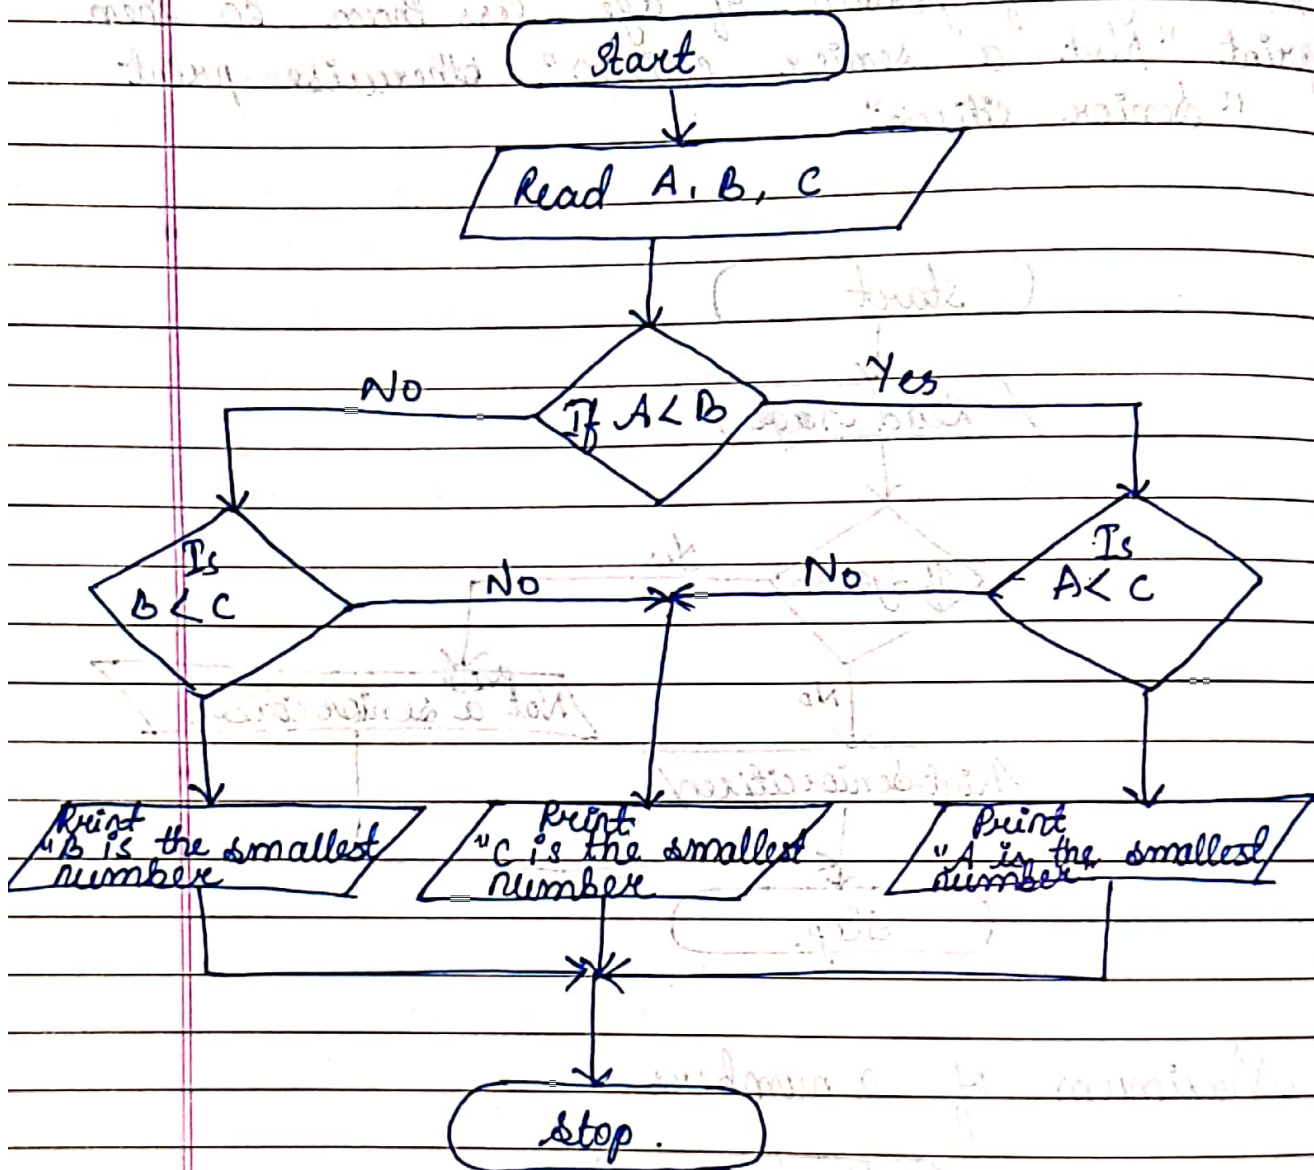 Start
Read A, B, C
No
Yes
If A < B
Is
B < C
No
No
Is
A < C
Print
"B is the smallest
number
Print
"C is the smallest
number
Print
"A is the smallest
number"
Stop.